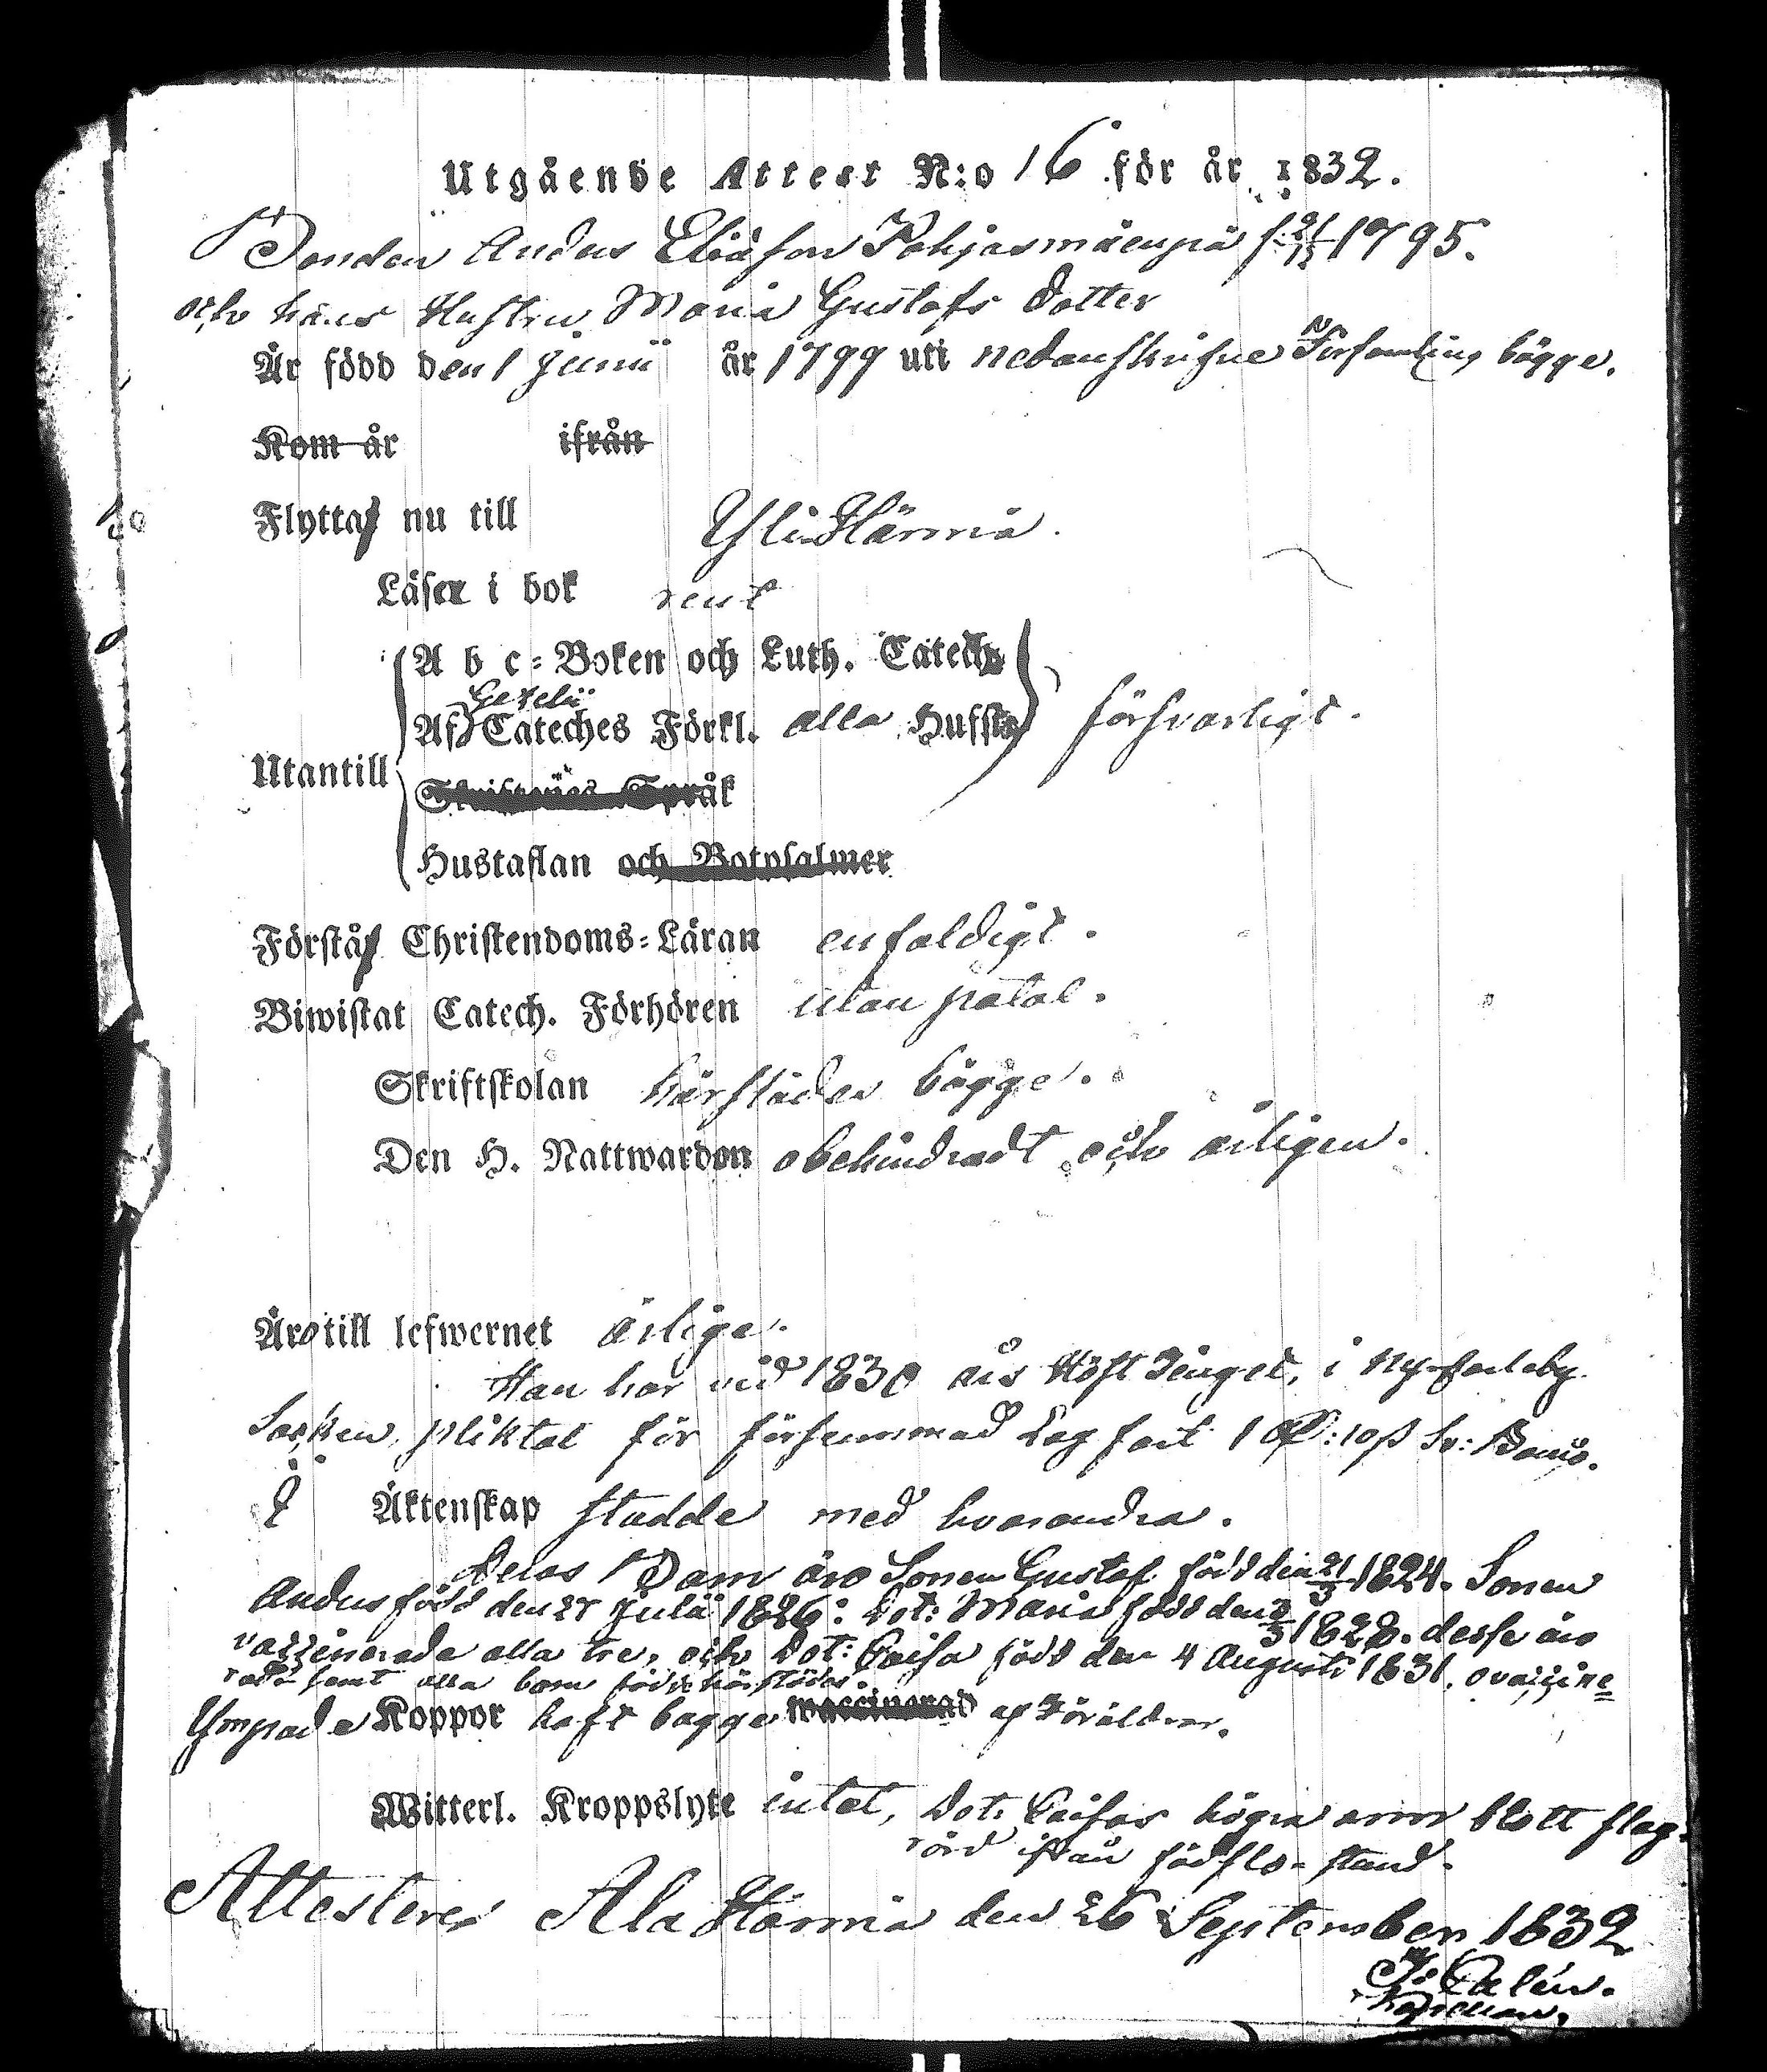 Utgående Attest N:o 16 för år 1832.
Bonden Anders Eliasson Pohjasmäenpä f. 21/12 1795.
och hans Hustru Maria Gustafs dotter
Är född den 1 Junii år 1799 uti nedanskrifne Församling bägge.
Kom år ifrån
Flyttaſ nu till Yli Härmä.
Läser i bok rent
A b c-Boken och Luth. Catech.
Gezelii
Af Cateches Förkl. alla Hufst. försvarligt.
Utantill
Skriftenes Språk
Hustaflan och Botpsalmer
Förståſ Christendoms-Läran enfaldigt.
Biwistat Catech. Förhören utan patal.
Skriftskolan härstädes bägge.
Den H. Nattwarden obehindradt och årligen.
Äro till lefwernet ärlige.
Han har vid 1830 års Höst Tinget, i Ny-Carleby
Socken, pliktat för försummad Lagfart 1 : 10 β Sv: Banco.
I Äktenskap stadde med hvarandra.
Deras Barn äro Sonen Gustaf född den 21/3 1824. Sonen
Anders född den 25 Julii 1826: Dot: Maria född den 3/3 1828. desse äro
vaccinerade alla tre, och Dot: Caisa född den 4 Augusti 1831, ovaccine=
rad samt alla barn födde härstädes.
Ympade Koppor haft bägge vaccinerad af Föräldrar.
Witterl. Kroppslyte intet, Dot: Caisas högra arm blott slag-
rörd ifrån födslo-stund.
Attesteres Ala Härmä den 26 September 1832
J: Calén.
Kapellan.